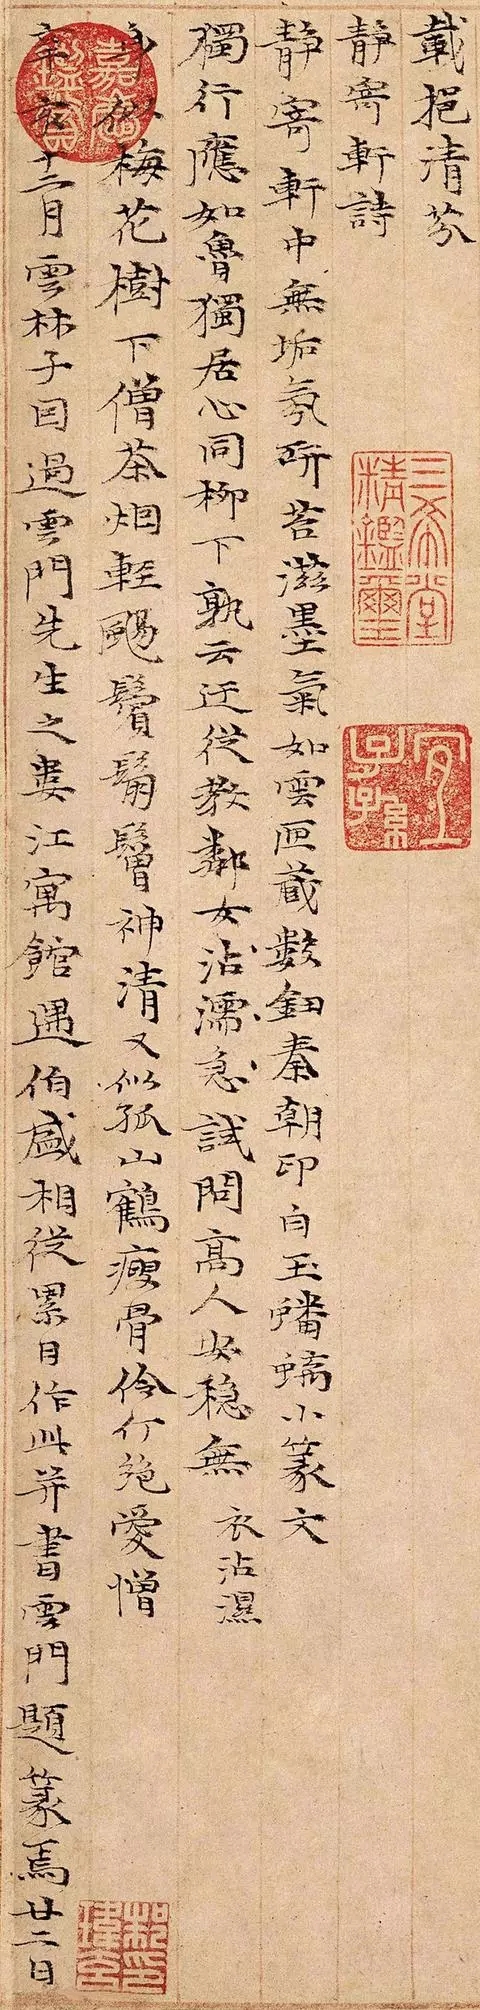 載挹清芬
靜寄軒詩
靜寄軒中無垢氛研苔滋墨氣如雲匣藏數鈕秦朝印白玉蟠螭小篆文
獨行應如魯獨居心同柳下孰云迂從教鄰女沾濡急試問高人安穩無 衣沾濕
梅花樹下僧茶烟輕颺鬢鬅鬙神清又似孤山鶴瘦骨伶仃絕愛憎
辛亥十二月雲林子因過雲門先生之婁江寓館遇伯盛相從累日作此并書雲門題篆焉廿二日
嘉慶鑑賞
三希堂精鑑璽
宜子孫